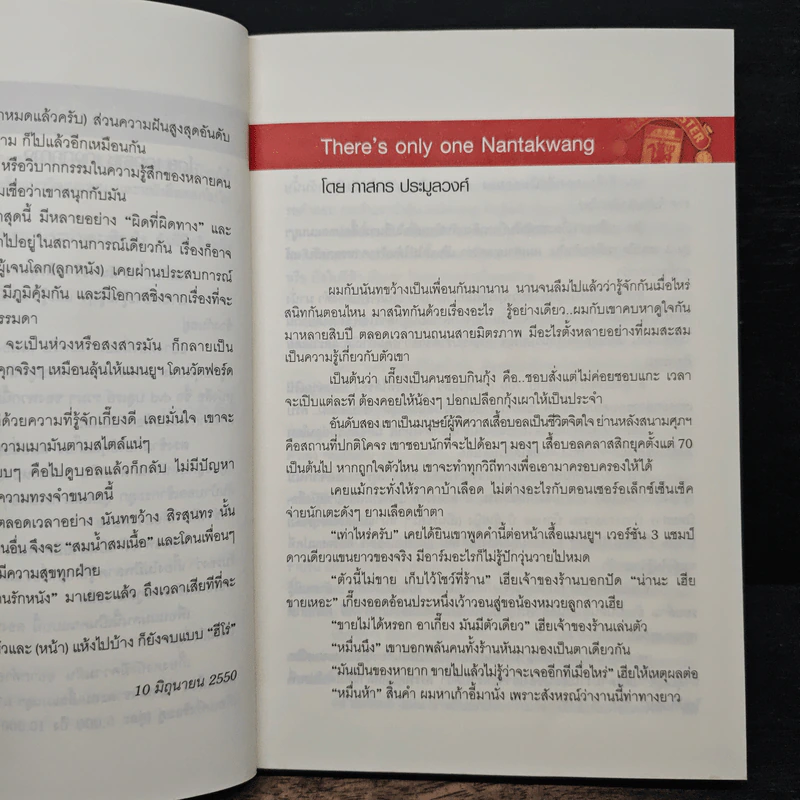 าหมดแล้วครับ) ส่วนความฝันสูงสุดอันดับ
าม ก็ไปแล้วอีกเหมือนกัน
หรือวิบากกรรมในความรู้สึกของหลายคน
มเชื่อว่าเขาสนุกกับมัน
าสุดนี้ มีหลายอย่าง “ผิดที่ผิดทาง” และ
าไปอยู่ในสถานการณ์เดียวกัน เรื่องก็อาจ
ผู้เจนโลก(ลูกหนัง) เคยผ่านประสบการณ์
มีภูมิคุ้มกัน และมีโอกาสซิ่งจากเรื่องที่จะ
รรมดา
จะเป็นห่วงหรือสงสารมัน ก็กลายเป็น
ุกจริงๆ เหมือนลุ้นให้แมนยูฯ โดนวัตฟอร์ด
ด้วยความที่รู้จักเกี๊ยงดี เลยมั่นใจ เขาจะ
ความเมามันตามสไตล์แน่ๆ
บบๆ คือไปดูบอลแล้วก็กลับ ไม่มีปัญหา
ความทรงจำขนาดนี้
ตลอดเวลาอย่าง นันทขว้าง สิรสุนทร นั้น
นอื่น จึงจะ “สมน้ำสมเนื้อ” และโดนเพื่อนๆ
มีความสุขทุกฝ่าย
นรักหนัง” มาเยอะแล้ว ถึงเวลาเสียทีที่จะ
ัวและ (หน้า) แห้งไปบ้าง ก็ยังจบแบบ “ฮีโร่”
10 มิถุนายน 2550
There's only one Nantakwang
โดย ภาสกร ประมูลวงศ์
ผมกับนันทขว้างเป็นเพื่อนกันมานาน นานจนลืมไปแล้วว่ารู้จักกันเมื่อไหร่
สนิทกันตอนไหน มาสนิทกันด้วยเรื่องอะไร รู้อย่างเดียว..ผมกับเขาคบหาดูใจกัน
มาหลายสิบปี ตลอดเวลาบนถนนสายมิตรภาพ มีอะไรตั้งหลายอย่างที่ผมสะสม
เป็นความรู้เกี่ยวกับตัวเขา
เป็นต้นว่า เกี๊ยงเป็นคนชอบกินกุ้ง คือ..ชอบสั่งแต่ไม่ค่อยชอบแกะ เวลา
จะเปิบแต่ละที ต้องคอยให้น้องๆ ปอกเปลือกกุ้งเผาให้เป็นประจำ
อันดับสอง เขาเป็นมนุษย์ผู้พิศวาสเสื้อบอลเป็นชีวิตจิตใจ ย่านหลังสนามศุภฯ
คือสถานที่ปกติโคจร เขาชอบนักที่จะไปด้อมๆ มองๆ เสื้อบอลคลาสสิกยุคตั้งแต่ 70
เป็นต้นไป หากถูกใจตัวไหน เขาจะทำทุกวิถีทางเพื่อเอามาครอบครองให้ได้
เคยแม้กระทั่งให้ราคาบ้าเลือด ไม่ต่างอะไรกับตอนเซอร์อเล็กซ์เซ็นเช็ค
จ่ายนักเตะดังๆ ยามเลือดเข้าตา
“เท่าไหร่ครับ” เคยได้ยินเขาพูดคำนี้ต่อหน้าเสื้อแมนยูฯ เวอร์ชั่น 3 แชมป์
ดาวเดียวแขนยาวของจริง มีอาร์มอะไรก็ไม่รู้ปักวุ่นวายไปหมด
“ตัวนี้ไม่ขาย เก็บไว้โชว์ที่ร้าน” เฮียเจ้าของร้านบอกปัด “น่านะ เฮีย
ขายเหอะ” เกี๊ยงออดอ้อนประหนึ่งเว้าวอนสู่ขอน้องหมวยลูกสาวเฮีย
“ขายไม่ได้หรอก อาเกี๊ยง มันมีตัวเดียว” เฮียเจ้าของร้านเล่นตัว
“หมื่นนึง” เขาบอกพลันคนทั้งร้านหันมามองเป็นตาเดียวกัน
“มันเป็นของหายาก ขายไปแล้วไม่รู้ว่าจะเจออีกทีเมื่อไหร่” เฮียให้เหตุผลต่อ
“หมื่นห้า” สิ้นคำ ผมหาเก้าอี้มานั่ง เพราะสังหรณ์ว่างานนี้ท่าทางยาว